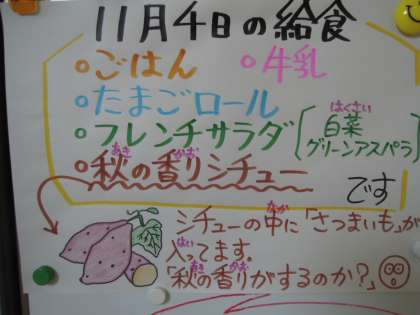 11月4日の給食
・ごはん ・牛乳
・たまごロール
・フレンチサラダ
はくさい
白菜
グリーンアスパラ
あき かお
・秋の香りシチュー
です
なか
シチューの中に「さつまいも」が
はい
入ってます。
あき かお
「秋の香りがするのか?」